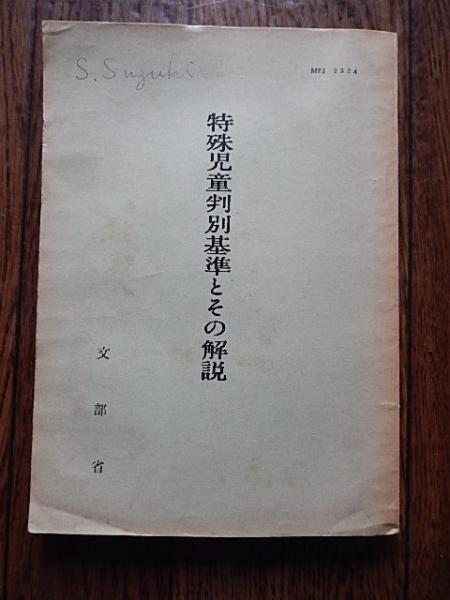 S. Suzuki
MEJ 2324
特殊児童判別基準とその解説
文部省